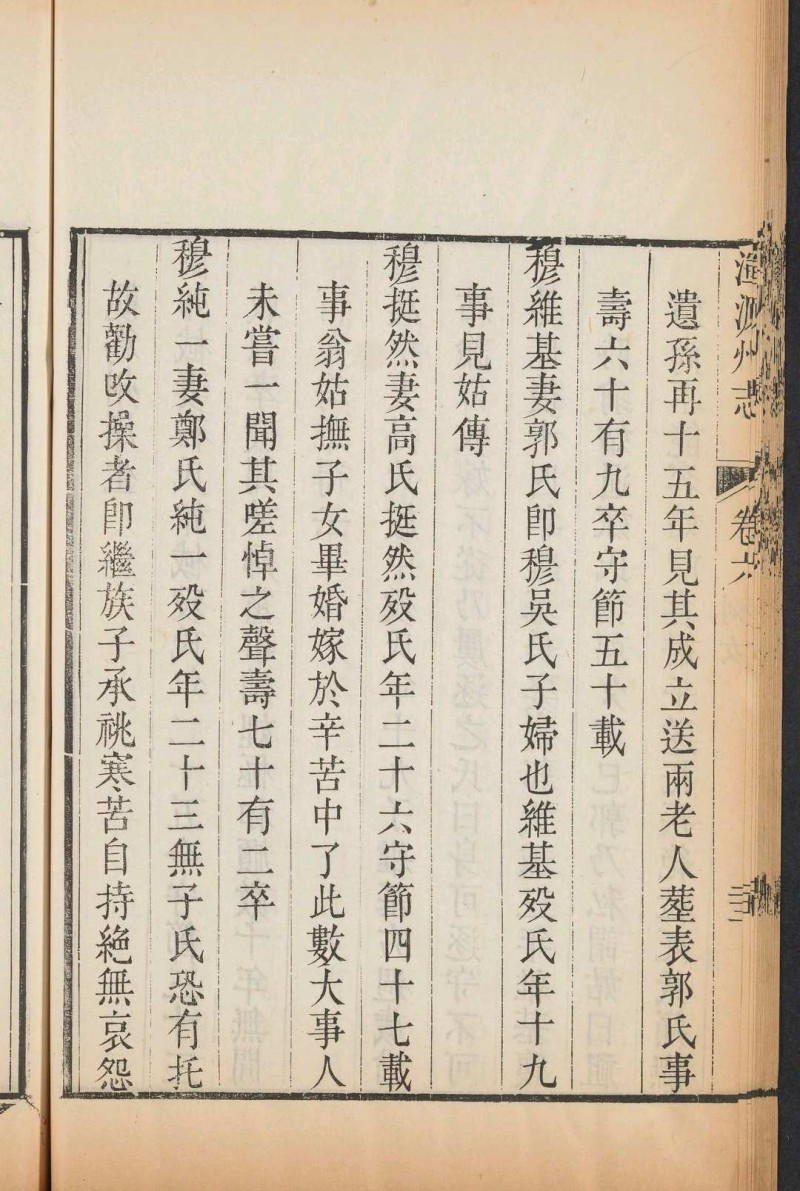 渾源州志
卷六
遺孫再十五年見其成立送兩老人塟表郭氏事
壽六十有九卒守節五十載
穆維基妻郭氏卽穆吳氏子婦也維基殁氏年十九
事見姑傳
穆挺然妻高氏挺然殁氏年二十六守節四十七載
事翁姑撫子女畢婚嫁於辛苦中了此數大事人
未嘗一聞其嗟悼之聲壽七十有二卒
穆純一妻鄭氏純一殁氏年二十三無子氏恐有托
故勸攺操者卽繼族子承祧寒苦自持絶無哀怨